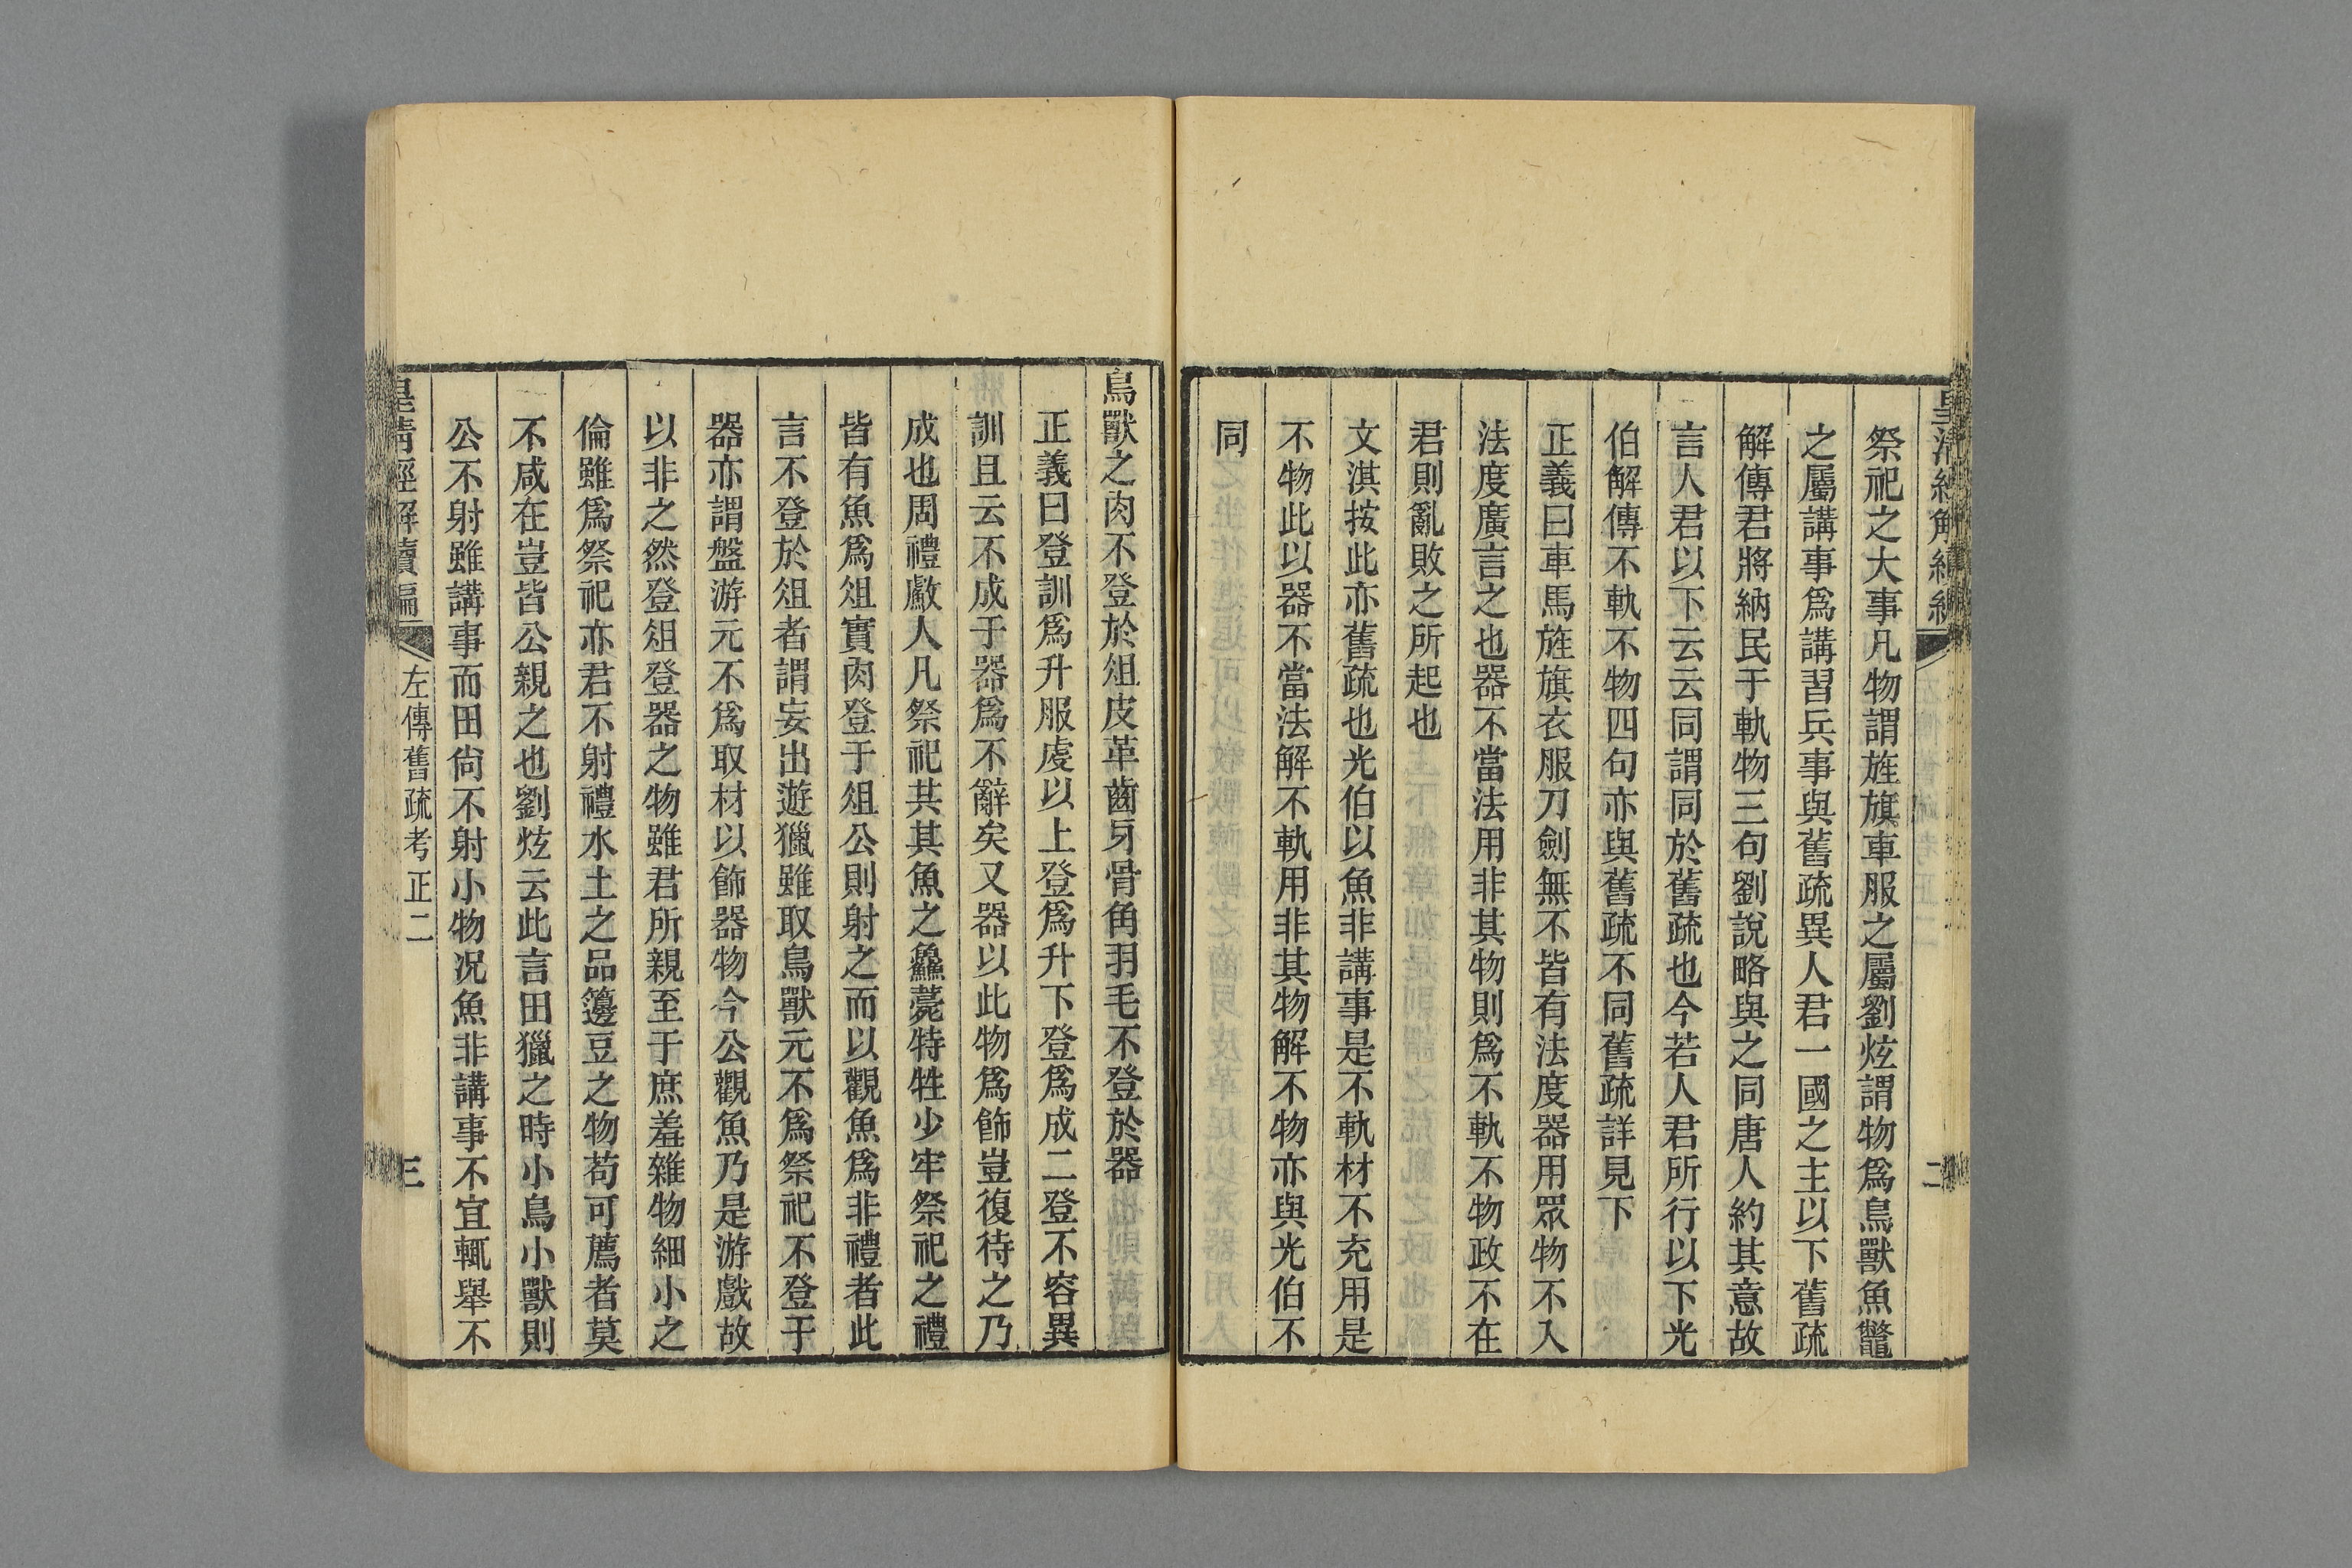 祭祀之大事凡物謂旌旗車服之屬劉炫謂物爲鳥獸魚鼈
之屬講事爲講習兵事與舊疏異人君一國之主以下舊疏
解傳君將納民于軌物三句劉說略與之同唐人約其意故
言人君以下云云同謂同於舊疏也今若人君所行以下光
伯解傳不軌不物四句亦與舊疏不同舊疏詳見下
正義曰車馬旌旗衣服刀劍無不皆有法度器用眾物不入
法度廣言之也器不當法用非其物則爲不軌不物政不在
君則亂敗之所起也
文淇按此亦舊疏也光伯以魚非講事是不軌材不充用是
不物此以器不當法解不軌用非其物解不物亦與光伯不
同
鳥獸之肉不登於俎皮革齒牙骨角羽毛不登於器
正義曰登訓爲升服虔以上登爲升下登爲成二登不容異
訓且云不成于器爲不辭矣又器以此物爲飾豈復待之乃
成也周禮䱷人凡祭祀共其魚之鱻薧特牲少牢祭祀之禮
皆有魚爲俎實肉登于俎公則射之而以觀魚爲非禮者此
言不登於俎者謂妄出遊獵雖取鳥獸元不爲祭祀不登于
器亦謂盤游元不爲取材以飾器物今公觀魚乃是游戲故
以非之然登俎登器之物雖君所親至于庶羞雜物細小之
倫雖爲祭祀亦君不射禮水土之品籩豆之物苟可薦者莫
不咸在豈皆公親之也劉炫云此言田獵之時小鳥小獸則
公不射雖講事而田尙不射小物况魚非講事不宜輒舉不
皇清經解續編
左傳舊疏考正二
三